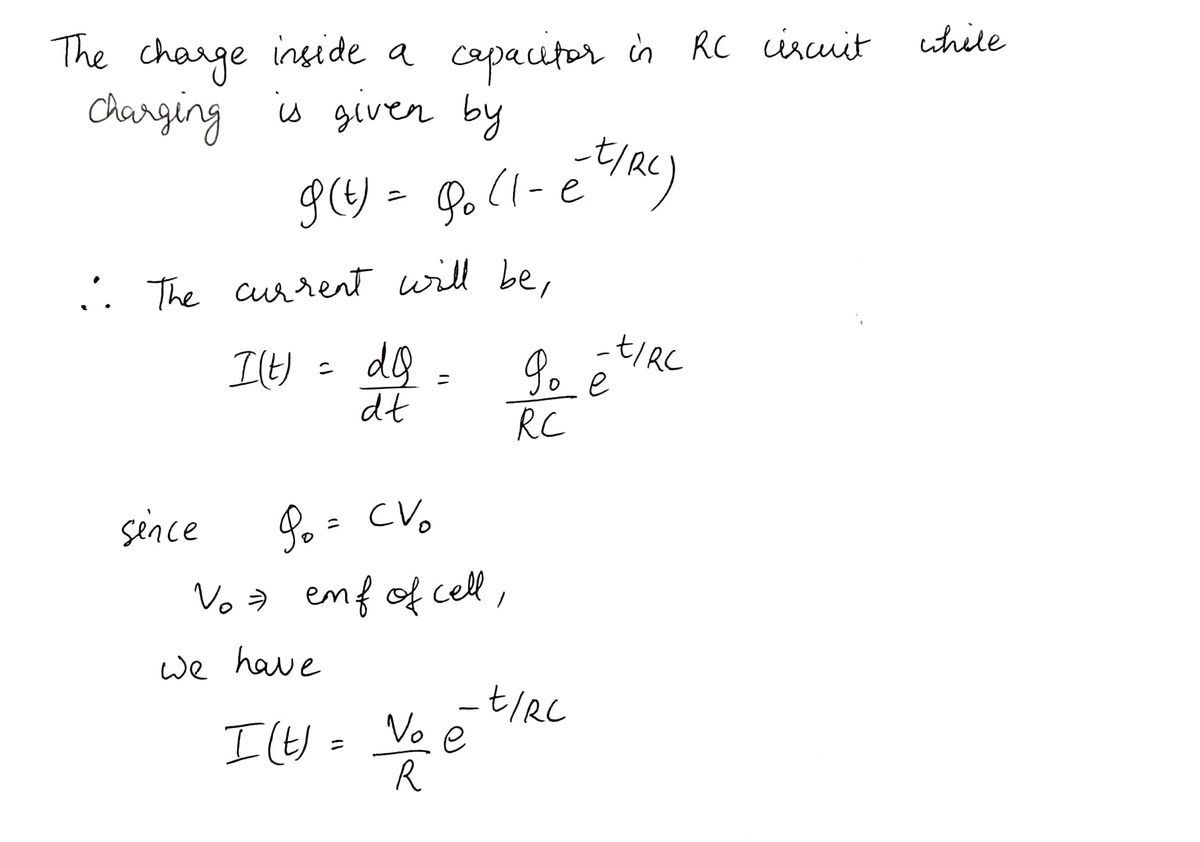 The charge inside a capacitor in RC circuit while
charging is given by
Q(t) = Q₀ (1 - e^{-t/RC})
∴ The current will be,
I(t) = dQ/dt = Q₀/RC e^{-t/RC}
since Q₀ = CV₀
V₀ ⇒ emf of cell,
we have
I(t) = V₀/R e^{-t/RC}